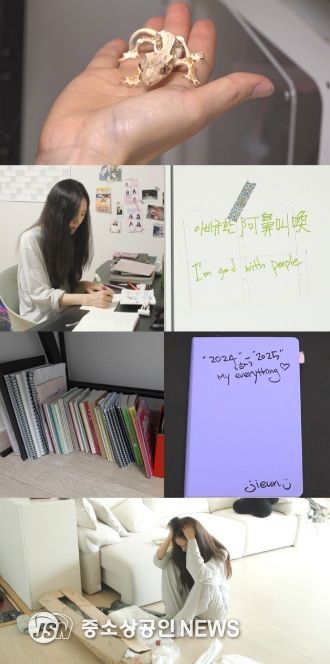 아비규환 阿鼻叫喚
I'm good with people
"2024" - "2025"
My everything ♡
jieun
JSN 중소상공인 NEWS